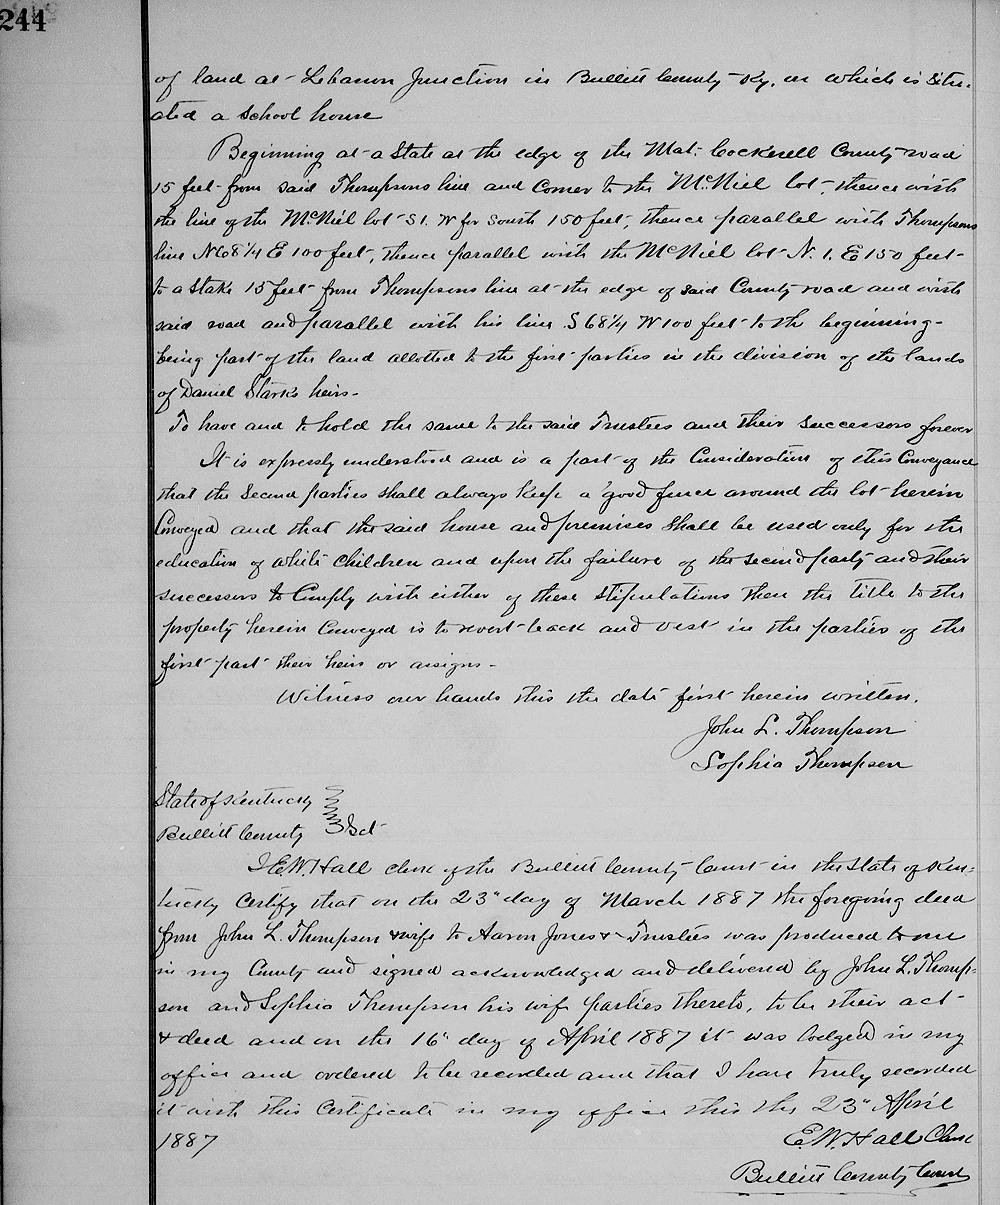 244
of land at Lebanon Junction in Bullitt County Ky. on which is situ-
ated a School house
Beginning at a Stake at the edge of the Mat. Cockerell County road
15 feet from said Thompsons line and Corner to the McNiel lot, thence with
the line of the McNiel lot S 1. W for South 150 feet, thence parallel with Thompsons
line N 68 1/4 E 100 feet, thence parallel with the McNiel lot N. 1. E 150 feet
to a Stake 15 feet from Thompsons line at the edge of said County road and with
said road and parallel with his line S 68 1/4 W 100 feet to the beginning-
being part of the land allotted to the first parties in the division of the lands
of Daniel Starks heirs-
To have and to hold the same to the said Trustees and their successors forever
It is expressly understood and is a part of the Consideration of this Conveyance
that the Second parties shall always keep a good fence around the lot herein
Conveyed and that the said house and premises shall be used only for the
education of white Children and upon the failure of the second party and their
successors to Comply with either of these stipulations then the Title to the
property herein Conveyed is to revert back and vest in the parties of the
first part their heirs or assigns-
Witness our hands this the date first herein written.
John L. Thompson
Sophia Thompson
State of Kentucky
Bullitt County Sct
I E.W. Hall clerk of the Bullitt County Court in the State of Ken-
tucky Certify that on the 23" day of March 1887 the foregoing deed
from John L. Thompson & wife to Aaron Jones & Trustees was produced to me
in my County and signed acknowledged and delivered by John L. Thomp-
son and Sophia Thompson his wife parties thereto, to be their act
& deed and on the 16" day of April 1887 it was lodged in my
office and ordered to be recorded and that I have truly recorded
it with this Certificate in my office this the 23" April
1887
E.W. Hall Clerk
Bullitt County Court